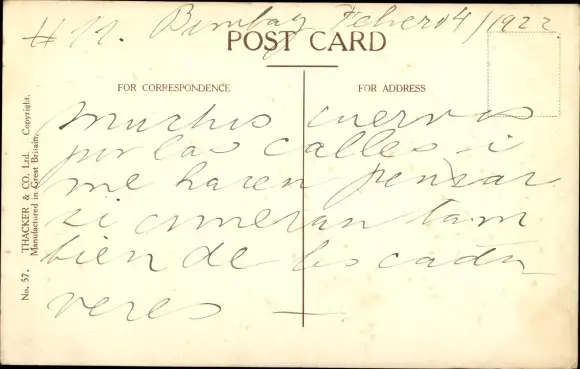 # 11. Bombay Febero 4/1922
POST CARD
FOR CORRESPONDENCE
FOR ADDRESS
Muchos cuervos
por las calles i
me hacen pensar
si comeran tam
bien de los cada
veres
No. 57. THACKER & CO., Ltd. Copyright.
Manufactured in Great Britain.